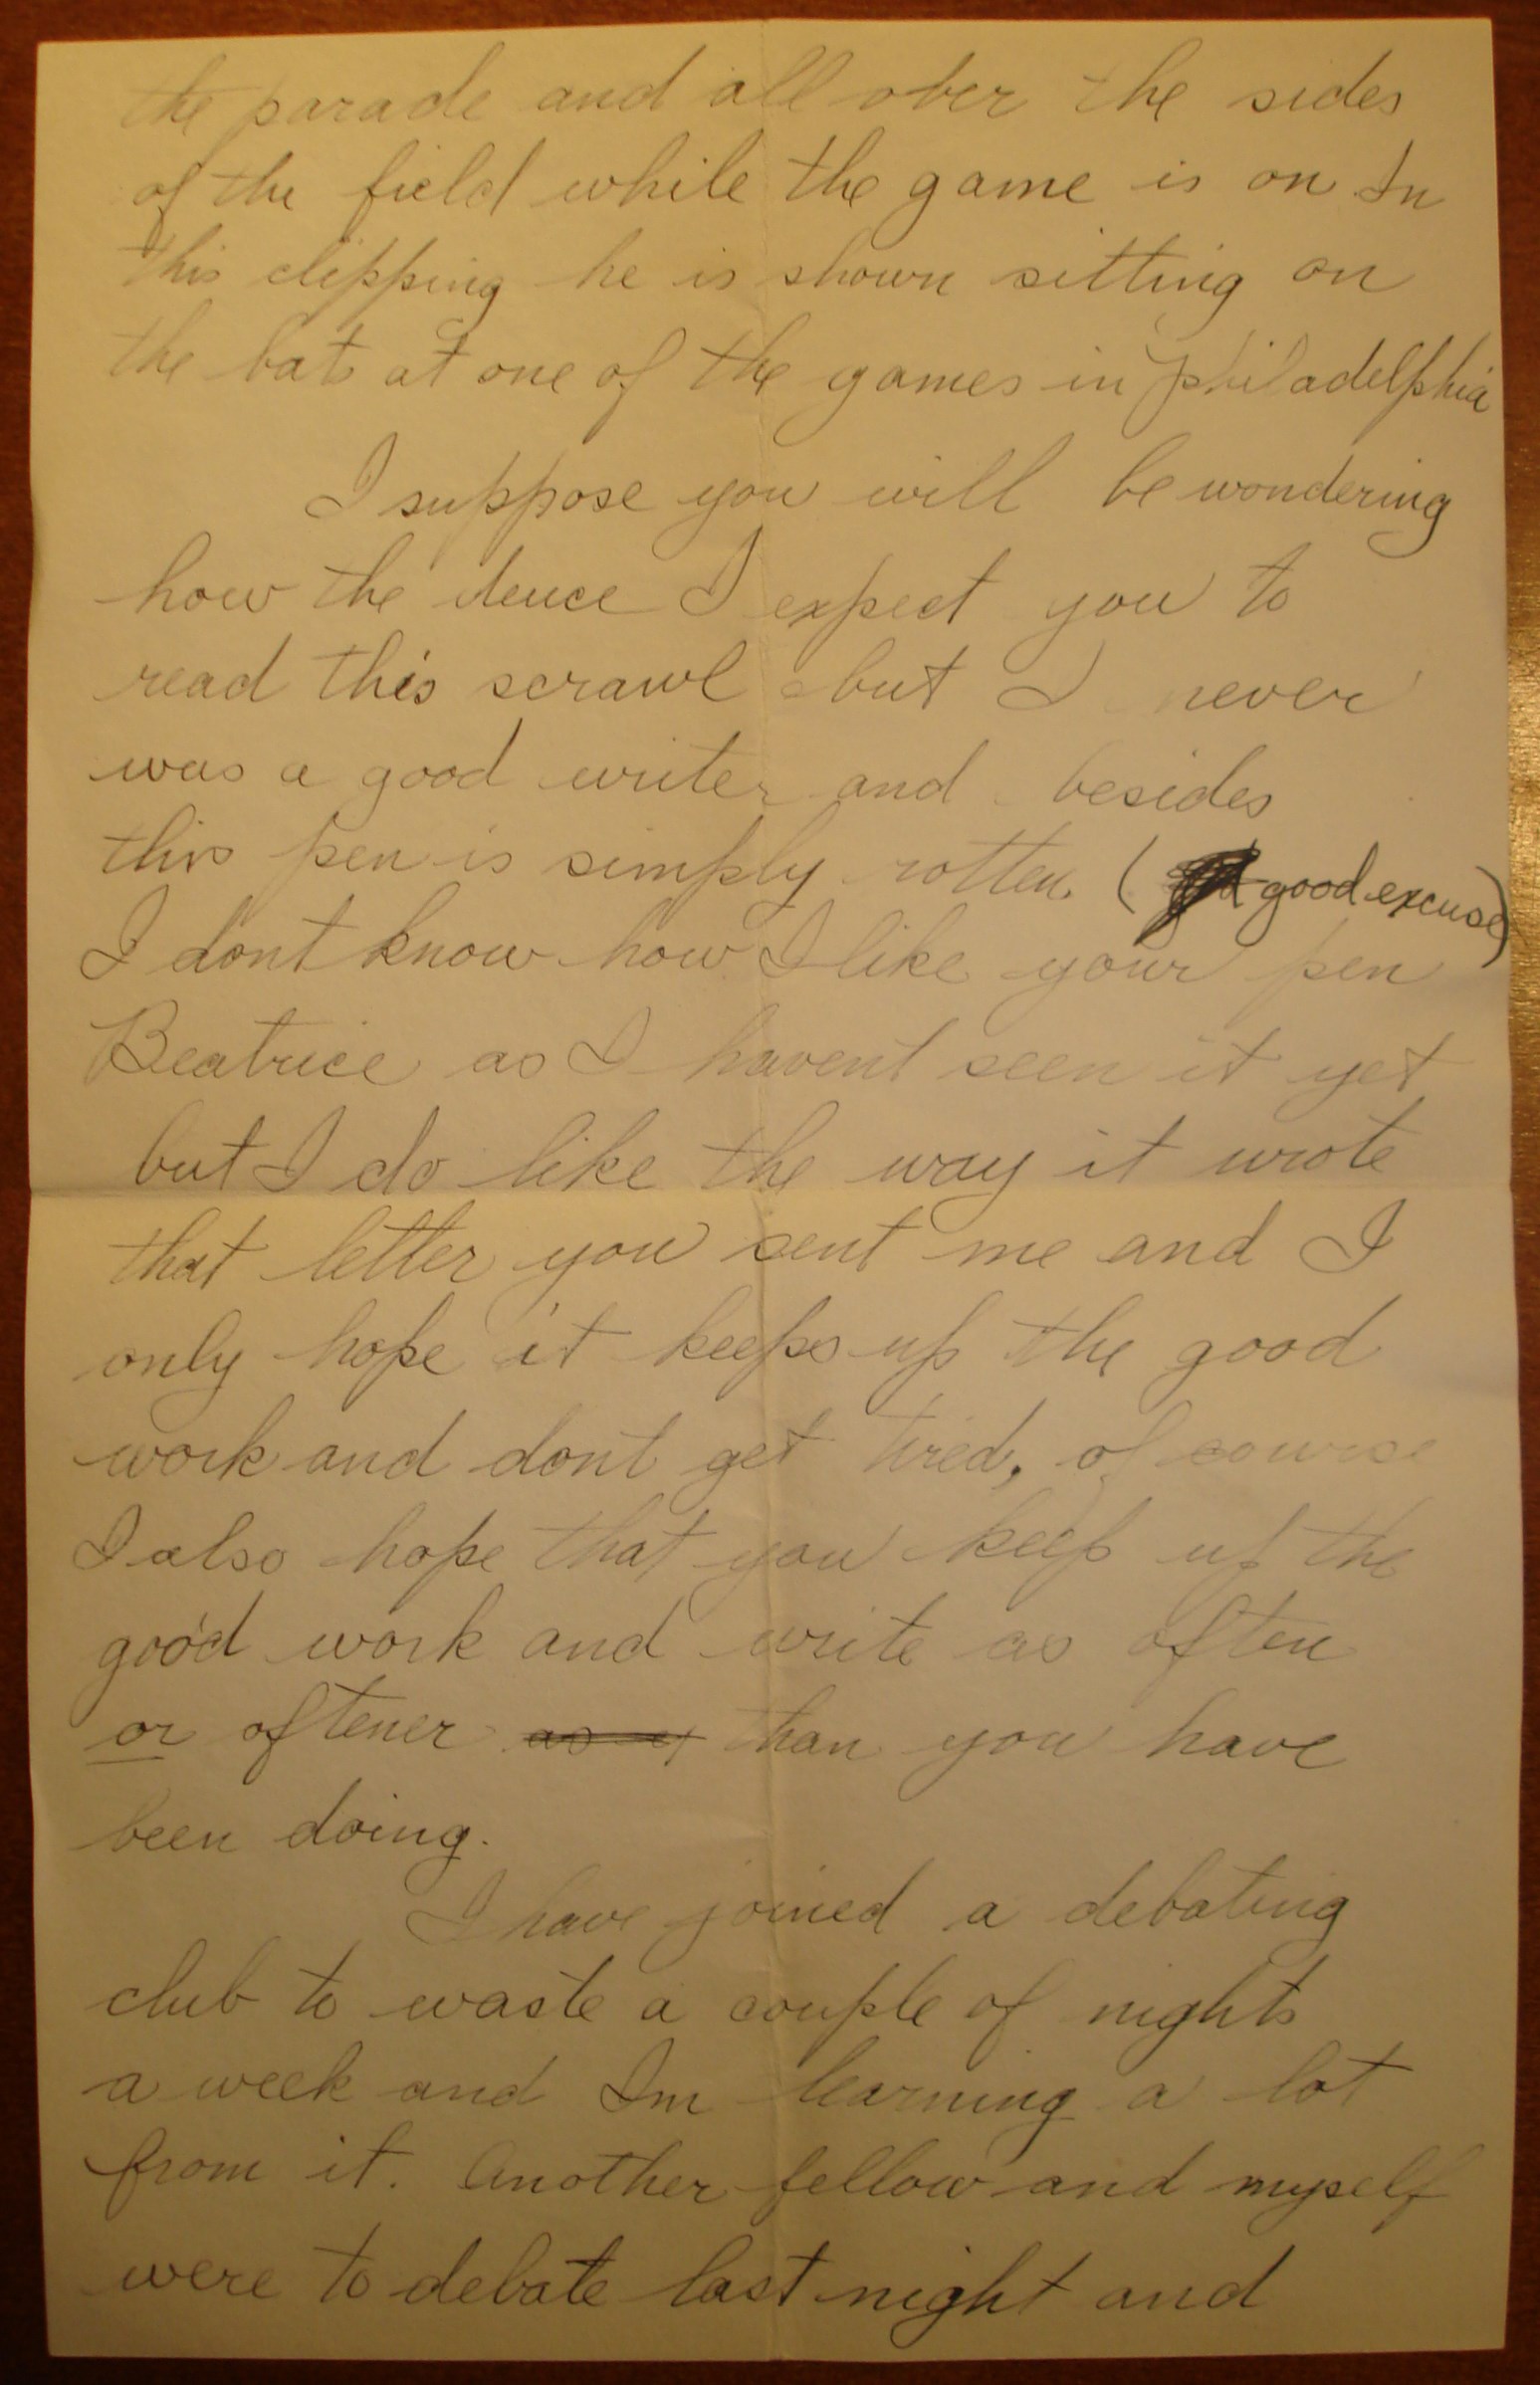 the parade and all over the sides
of the field while the game is on In
this clipping he is shown sitting on
the bat at one of the games in Philadelphia
I suppose you will be wondering
how the deuce I expect you to
read this scrawl but I never
was a good writer and besides
this pen is simply rotten. ( good excuse)
I dont know how I like your pen
Beatrice as I havent seen it yet
but I do like the way it wrote
that letter you sent me and I
only hope it keeps up the good
work and dont get tired, of course
I also hope that you keep up the
good work and write as often
or oftener as than you have
been doing.
I have joined a debating
club to waste a couple of nights
a week and Im learning a lot
from it. Another fellow and myself
were to debate last night and